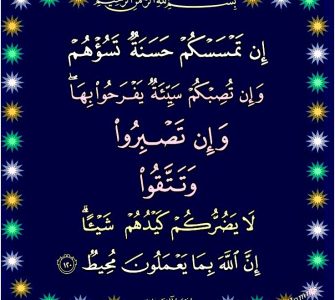 بِسْمِ اللَّهِ الرَّحْمَٰنِ الرَّحِيمِ
إِن تَمْسَسْكُمْ حَسَنَةٌ تَسُؤْهُمْ
وَإِن تُصِبْكُمْ سَيِّئَةٌ يَفْرَحُوا۟ بِهَا ۖ
وَإِن تَصْبِرُوا۟
وَتَتَّقُوا۟
لَا يَضُرُّكُمْ كَيْدُهُمْ شَيْـًٔا ۗ
إِنَّ اللَّهَ بِمَا يَعْمَلُونَ مُحِيطٌ ١٢٠